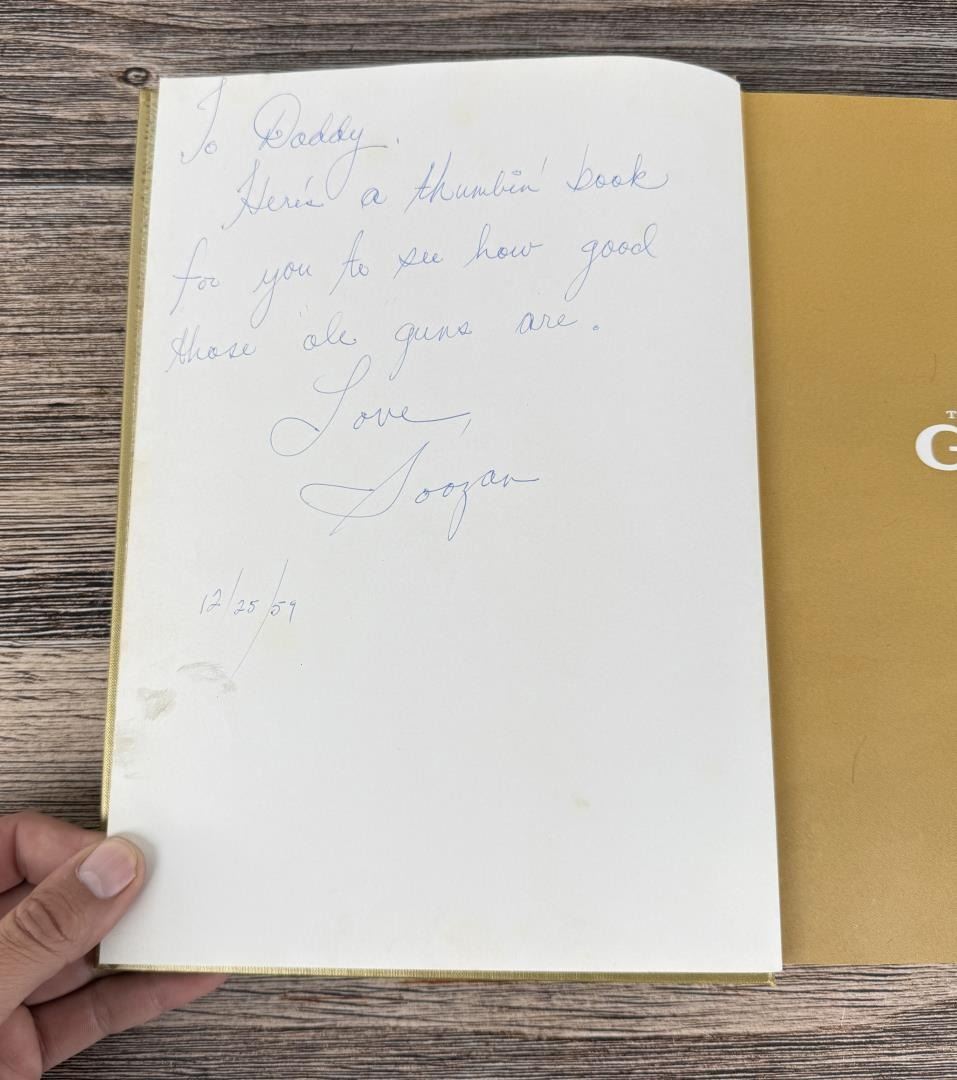 To Daddy.
Here's a thumbin' book
for you to see how good
those 'ole guns are.
Love,
Soozan
12/25/59
T
G